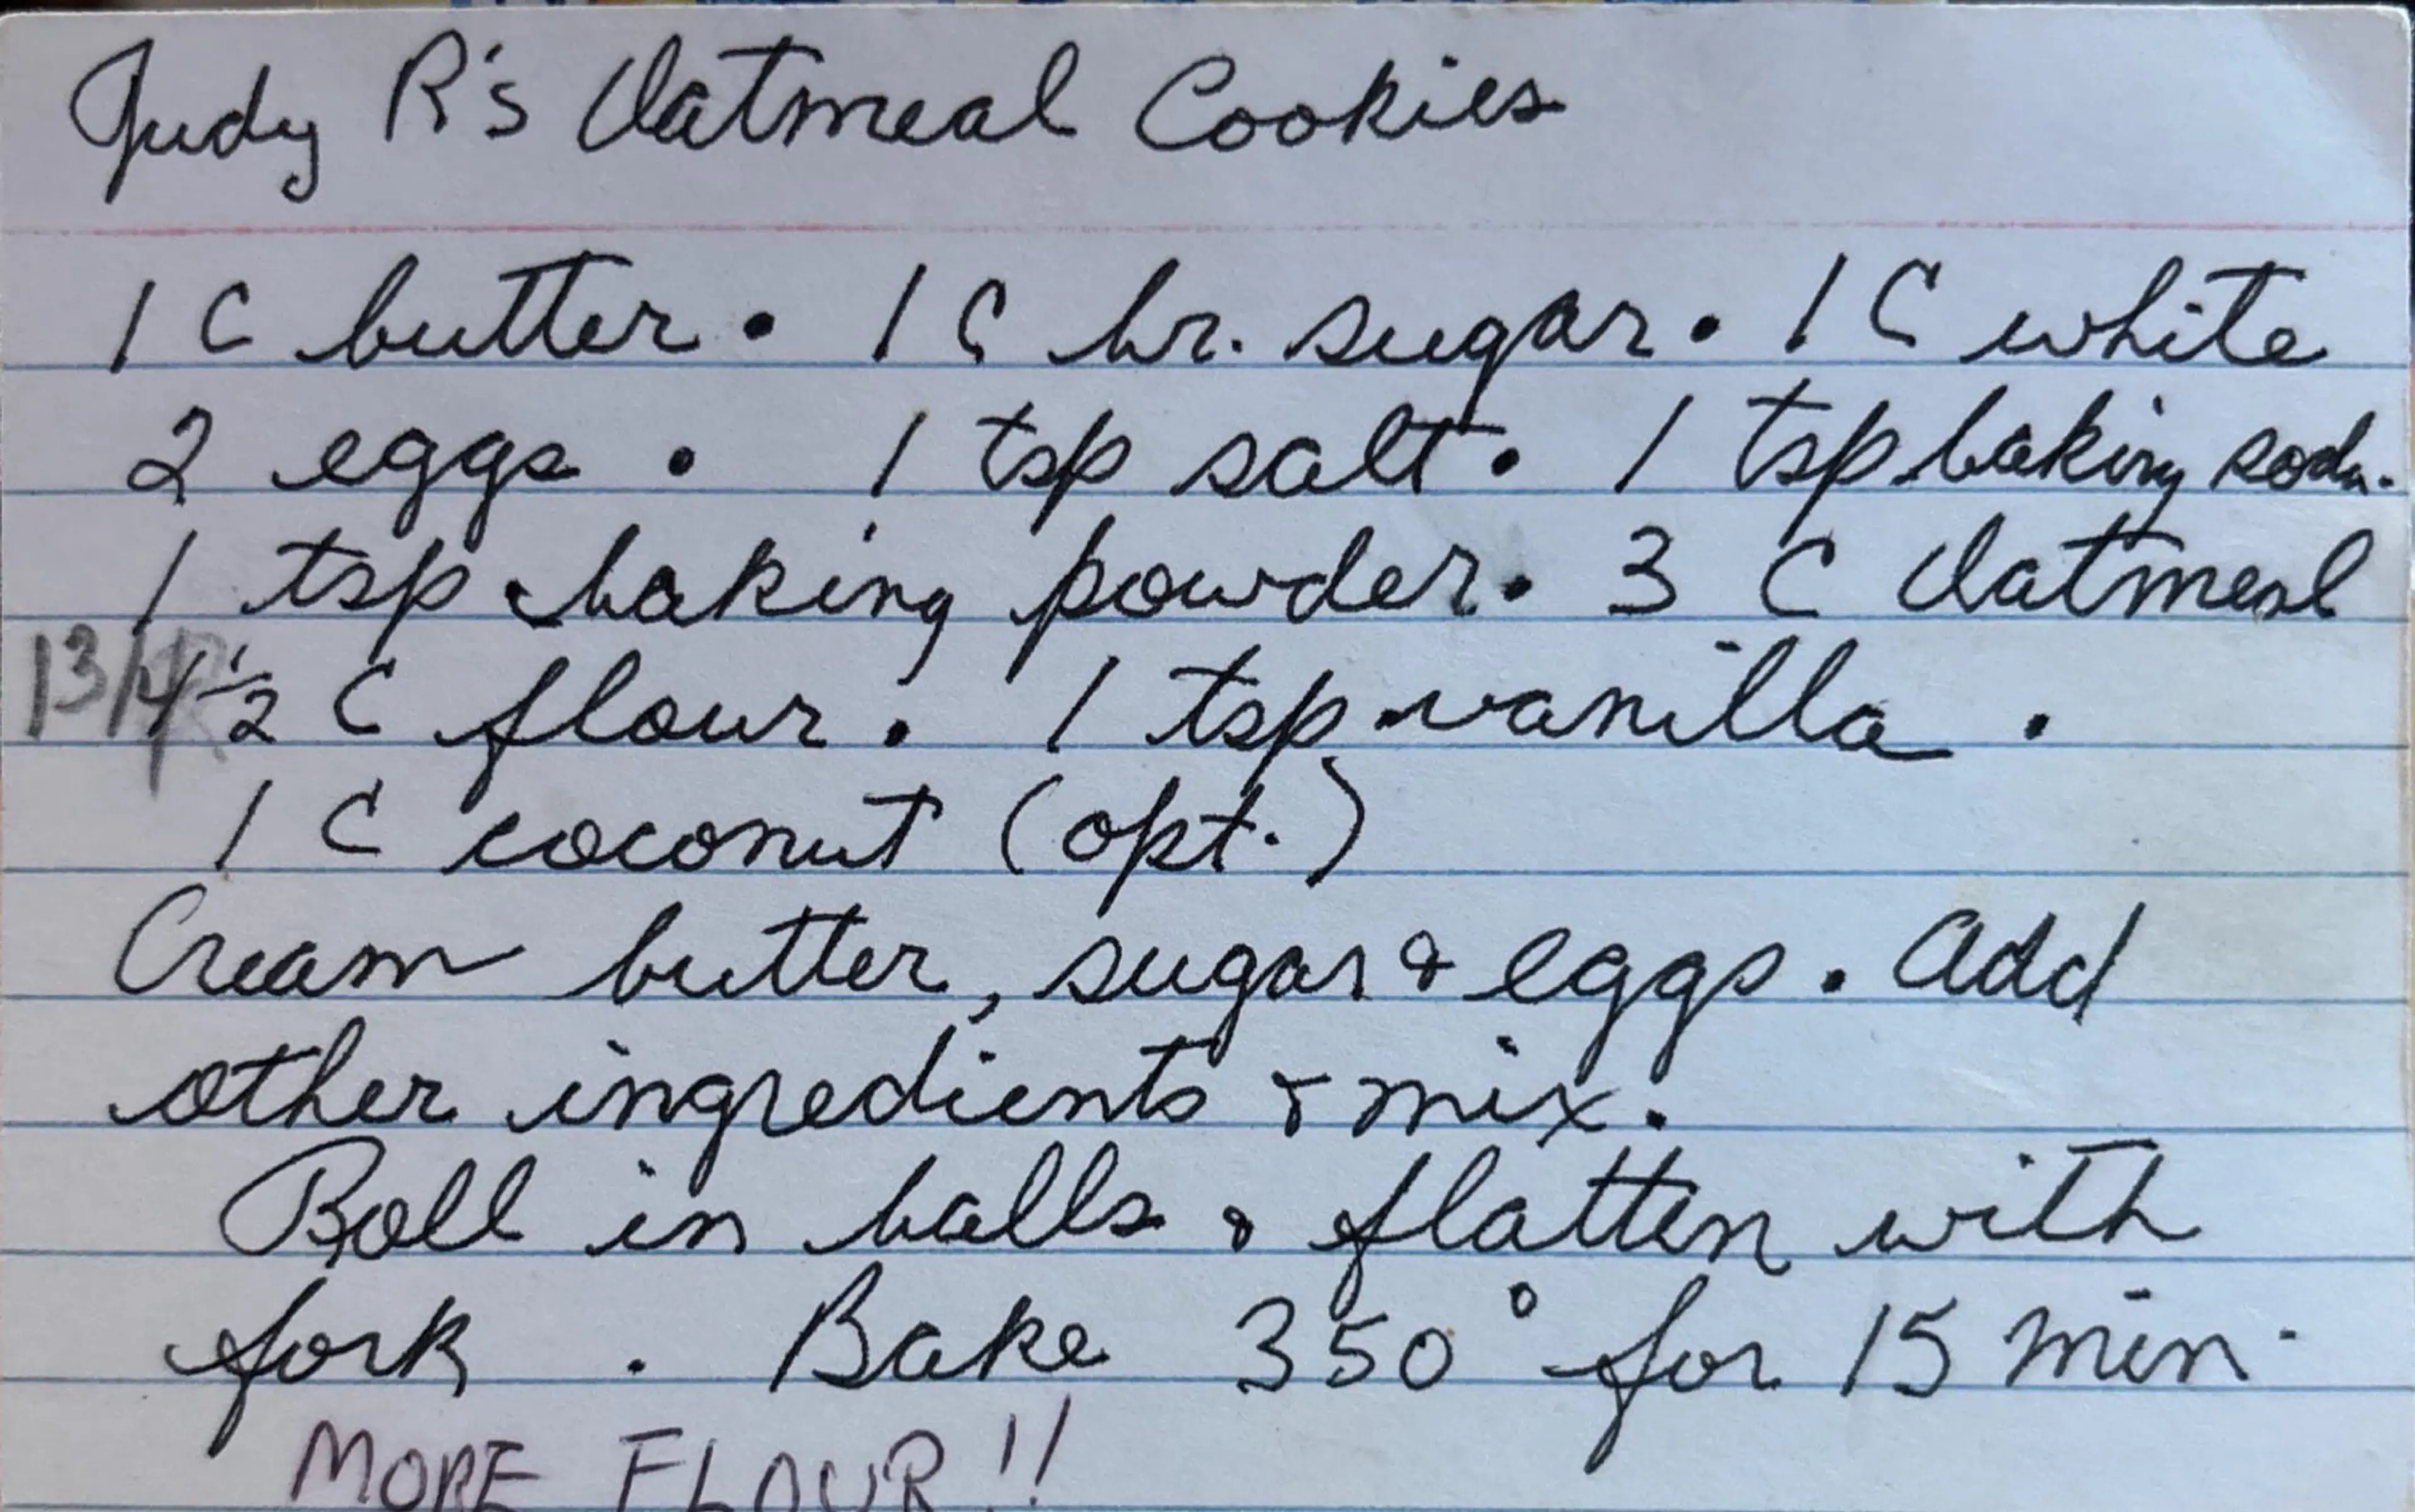 Judy R's Oatmeal Cookies
1 C butter • 1 C br. sugar • 1 C white
2 eggs • 1 tsp salt • 1 tsp baking soda •
1 tsp baking powder • 3 C Oatmeal
1 3/4 1 1/2 C flour • 1 tsp vanilla •
1 C coconut (opt.)
Cream butter, sugar & eggs. Add
other ingredients & mix.
Roll in balls & flatten with
fork. Bake 350° for 15 min.
MORE FLOUR!!